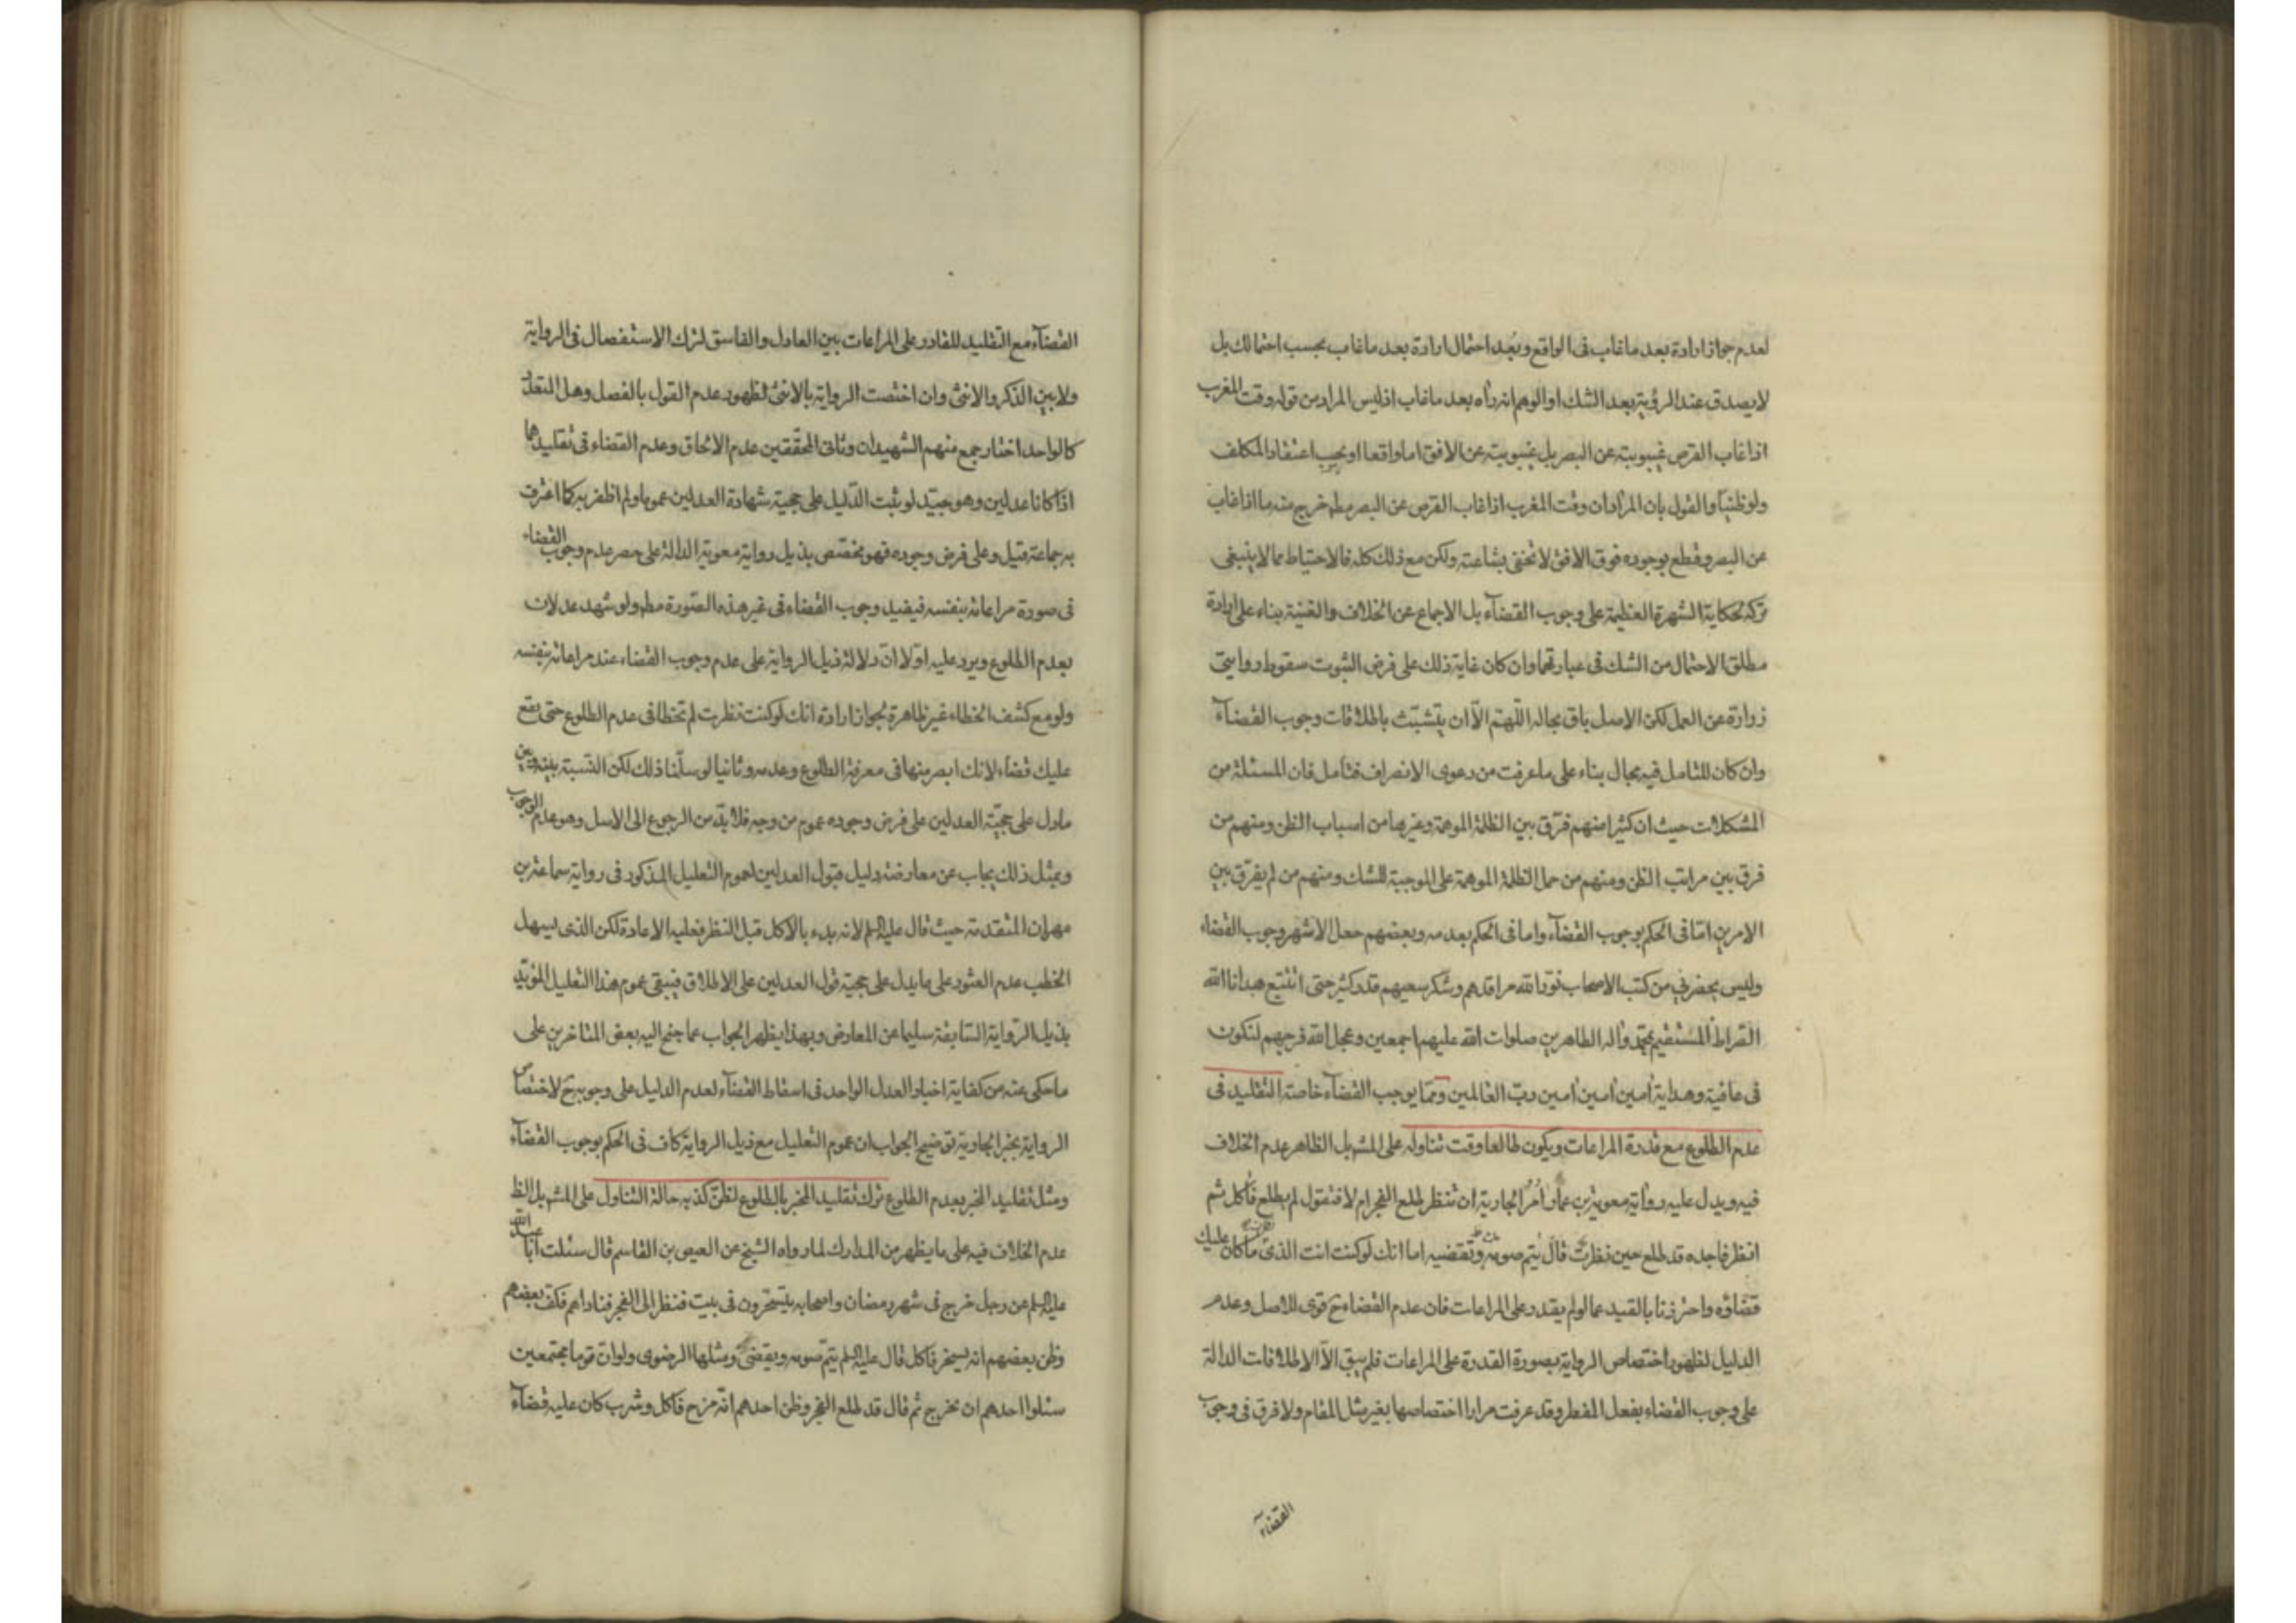 لعدم جواز ارادة بعد ما غاب فى الواقع وبعد احتمال ارادة بعد ما غاب بحسب احتمالك بل
لا يصدق عند الرؤية بعد الشك او الوهم انه رآه بعد ما غاب اذ ليس المراد من قوله وقت المغرب
اذا غاب القرص غيبوبته عن البصر بل غيبوبته عن الافق اما واقعا او بحسب اعتقاد المكلف
ولو ظنيا والقول بان المراد ان وقت المغرب اذا غاب القرص عن البصر مط خرج منه ما اذا غاب
عن البصر وقطع بوجوده فوق الافق لا تخفى بشاعته ولكن مع ذلك كله فالاحتياط مما لا ينبغى
تركه لحكاية الشهرة العظيمة على وجوب القضآء بل الاجماع عن الخلاف والغنية بناء على ارادة
مطلق الاحتمال من الشك فى عبارتهما وان كان غاية ذلك على فرض الثبوت سقوط روايتى
زرارة عن العمل لكن الاصل باق بحاله اللّهمّ الّا ان يتشبّث باطلاقات وجوب القضآء
وان كان للتامل فيه مجال بناء على ما عرفت من دعوى الانصراف فتامل فان المسئلة من
المشكلات حيث ان كثيرا منهم فرّق بين الظلمة الموهمة وغيرها من اسباب الظن ومنهم من
فرق بين مراتب الظن ومنهم من حمل الظلمة الموهمة على الموجبة للشك ومنهم من لم يفرّق بين
الامرين امّا فى الحكم بوجوب القضآء واما فى الحكم بعدمه وبعضهم جعل الاشهر وجوب القضاء
وليس يحضرنى من كتب الاصحاب نوّر الله مراقدهم وشكر سعيهم قدر كثير حتى اتتبع هدانا الله
الصراط المستقيم بمحمّد وآله الطاهرين صلوات الله عليهم اجمعين وعجل الله فرجهم لنكون
فى عافية وهداية آمين آمين آمين ربّ العالمين وممّا يوجب القضآء خاصة التقليد فى
عدم الطلوع مع قدرة المراعات ويكون طالعا وقت تناوله على المشهور بل الظاهر عدم الخلاف
فيه ويدل عليه رواية معوية بن عمّار آمر الجارية ان تنظر طلع الفجر ام لا فتقول لم يطلع فآكل ثم
انظر فاجده قد طلع حين نظرت قال يتم صومه وتقضيه اما انك لو كنت انت الذى ما كان عليك
قضاؤه واحترزنا بالقيد عما لو لم يقدر على المراعات فان عدم القضاء ح قوى للاصل وعدم
الدليل لظهور اختصاص الرواية بصورة القدرة على المراعات فلم يبق الّا الاطلاقات الدالة
على وجوب القضاء بفعل المفطر وقد عرفت مرارا اختصاصها بغير مثل المقام ولا فرق فى وجوب
القضآء
القضآء مع التقليد للقادر على المراعات بين العادل والفاسق لترك الاستفصال فى الرواية
ولا بين الذكر والانثى وان اختصت الرواية بالانثى لظهور عدم القول بالفصل وهل
كالواحد اختار جمع منهم الشهيدان وثانى المحقّقين عدم الالحاق وعدم القضاء فى تقليدهما
اذا كانا عدلين وهو جيّد لو ثبت الدّليل على حجية شهادة العدلين عموما ولم اظفر به كما اعترف
به جماعة قيل وعلى فرض وجوده فهو مخصّص بذيل رواية معوية الدالة على حصر عدم وجوب القضاء
فى صورة مراعاته بنفسه فيفيد وجوب القضاء فى غير هذه الصّورة مط ولو شهد عدلان
بعدم الطلوع ويرد عليه اوّلا انّ دلالة ذيل الرواية على عدم وجوب القضاء عند مراعاته بنفسه
ولو مع كشف الخطاء غير ظاهرة لجواز ارادة انك لو كنت نظرت لم تخطا فى عدم الطلوع حتى يقع
عليك قضاء لانك ابصر منها فى معرفة الطلوع وعدمه وثانيا لو سلّمنا ذلك لكن النّسبة بينه وبين
ما دل على حجّية العدلين على فرض وجوده عموم من وجه فلا بدّ من الرجوع الى الاصل وهو عدم الوجوب
وبمثل ذلك يجاب عن معارضة دليل قبول العدلين لعموم التعليل المذكور فى رواية سماعة بن
مهران المتقدمة حيث قال عليه السلم لانه بدء بالاكل قبل النظر فعليه الاعادة لكن الذى يسهل
الخطب عدم العثور على ما يدل على حجية قول العدلين على الاطلاق فيبقى عموم هذا التعليل المؤيّد
بذيل الرّواية السّابقة سليما عن المعارض وبهذا يظهر الجواب عما جنح اليه بعض المتاخرين على
ما حكى عنه من كفاية اخبار العدل الواحد فى اسقاط القضآء لعدم الدليل على وجوبه ح لاختصاص
الرواية بخبر الجارية توضيح الجواب ان عموم التعليل مع ذيل الرواية كاف فى الحكم بوجوب القضآء
ومثل تقليد المخبر بعدم الطلوع ترك تقليد المخبر بالطلوع لظنّ كذبه حالة التناول على المشهور بل الظ
عدم الخلاف فيه على ما يظهر من المدارك لما رواه الشيخ عن العيص بن القاسم قال سئلت ابا عبد الله
عليه السلم عن رجل خرج فى شهر رمضان واصحابه يتسحّرون فى بيت فنظر الى الفجر فناداهم فكفّ بعضهم
وظن بعضهم انه يسخر فاكل قال عليه السلم يتم صومه ويقضى ومثلها الرضوى ولو انّ قوما مجتمعين
سئلوا احدهم ان يخرج ثم قال قد طلع الفجر وظن احدهم انّه مزح فاكل وشرب كان عليه قضآء